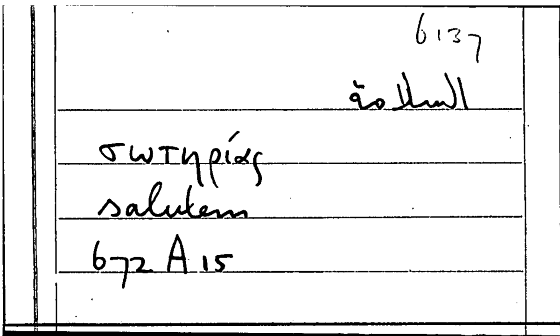 6137
السلامة
σωτηρίας
salutem
672 A 15